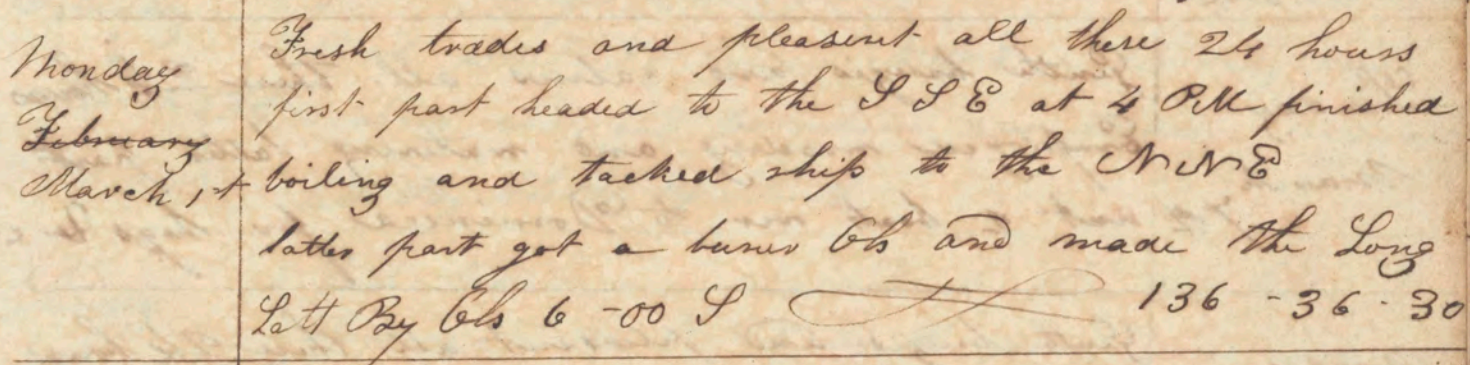 Monday
February
March 1st
Fresh trades and pleasent all these 24 hours
first part headed to the S S E at 4 P.M finished
boiling and tacked ship to the N N E
latter part got a luner Obs and made the Long
Latt By Obs 6 -00 S 136 -36 -30